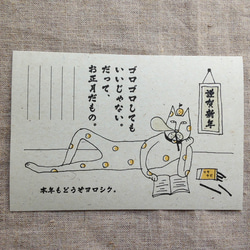 謹賀新年
ゴロゴロしても
いいじゃない。
だって、
お正月だもの。
本年もどうぞヨロシク。